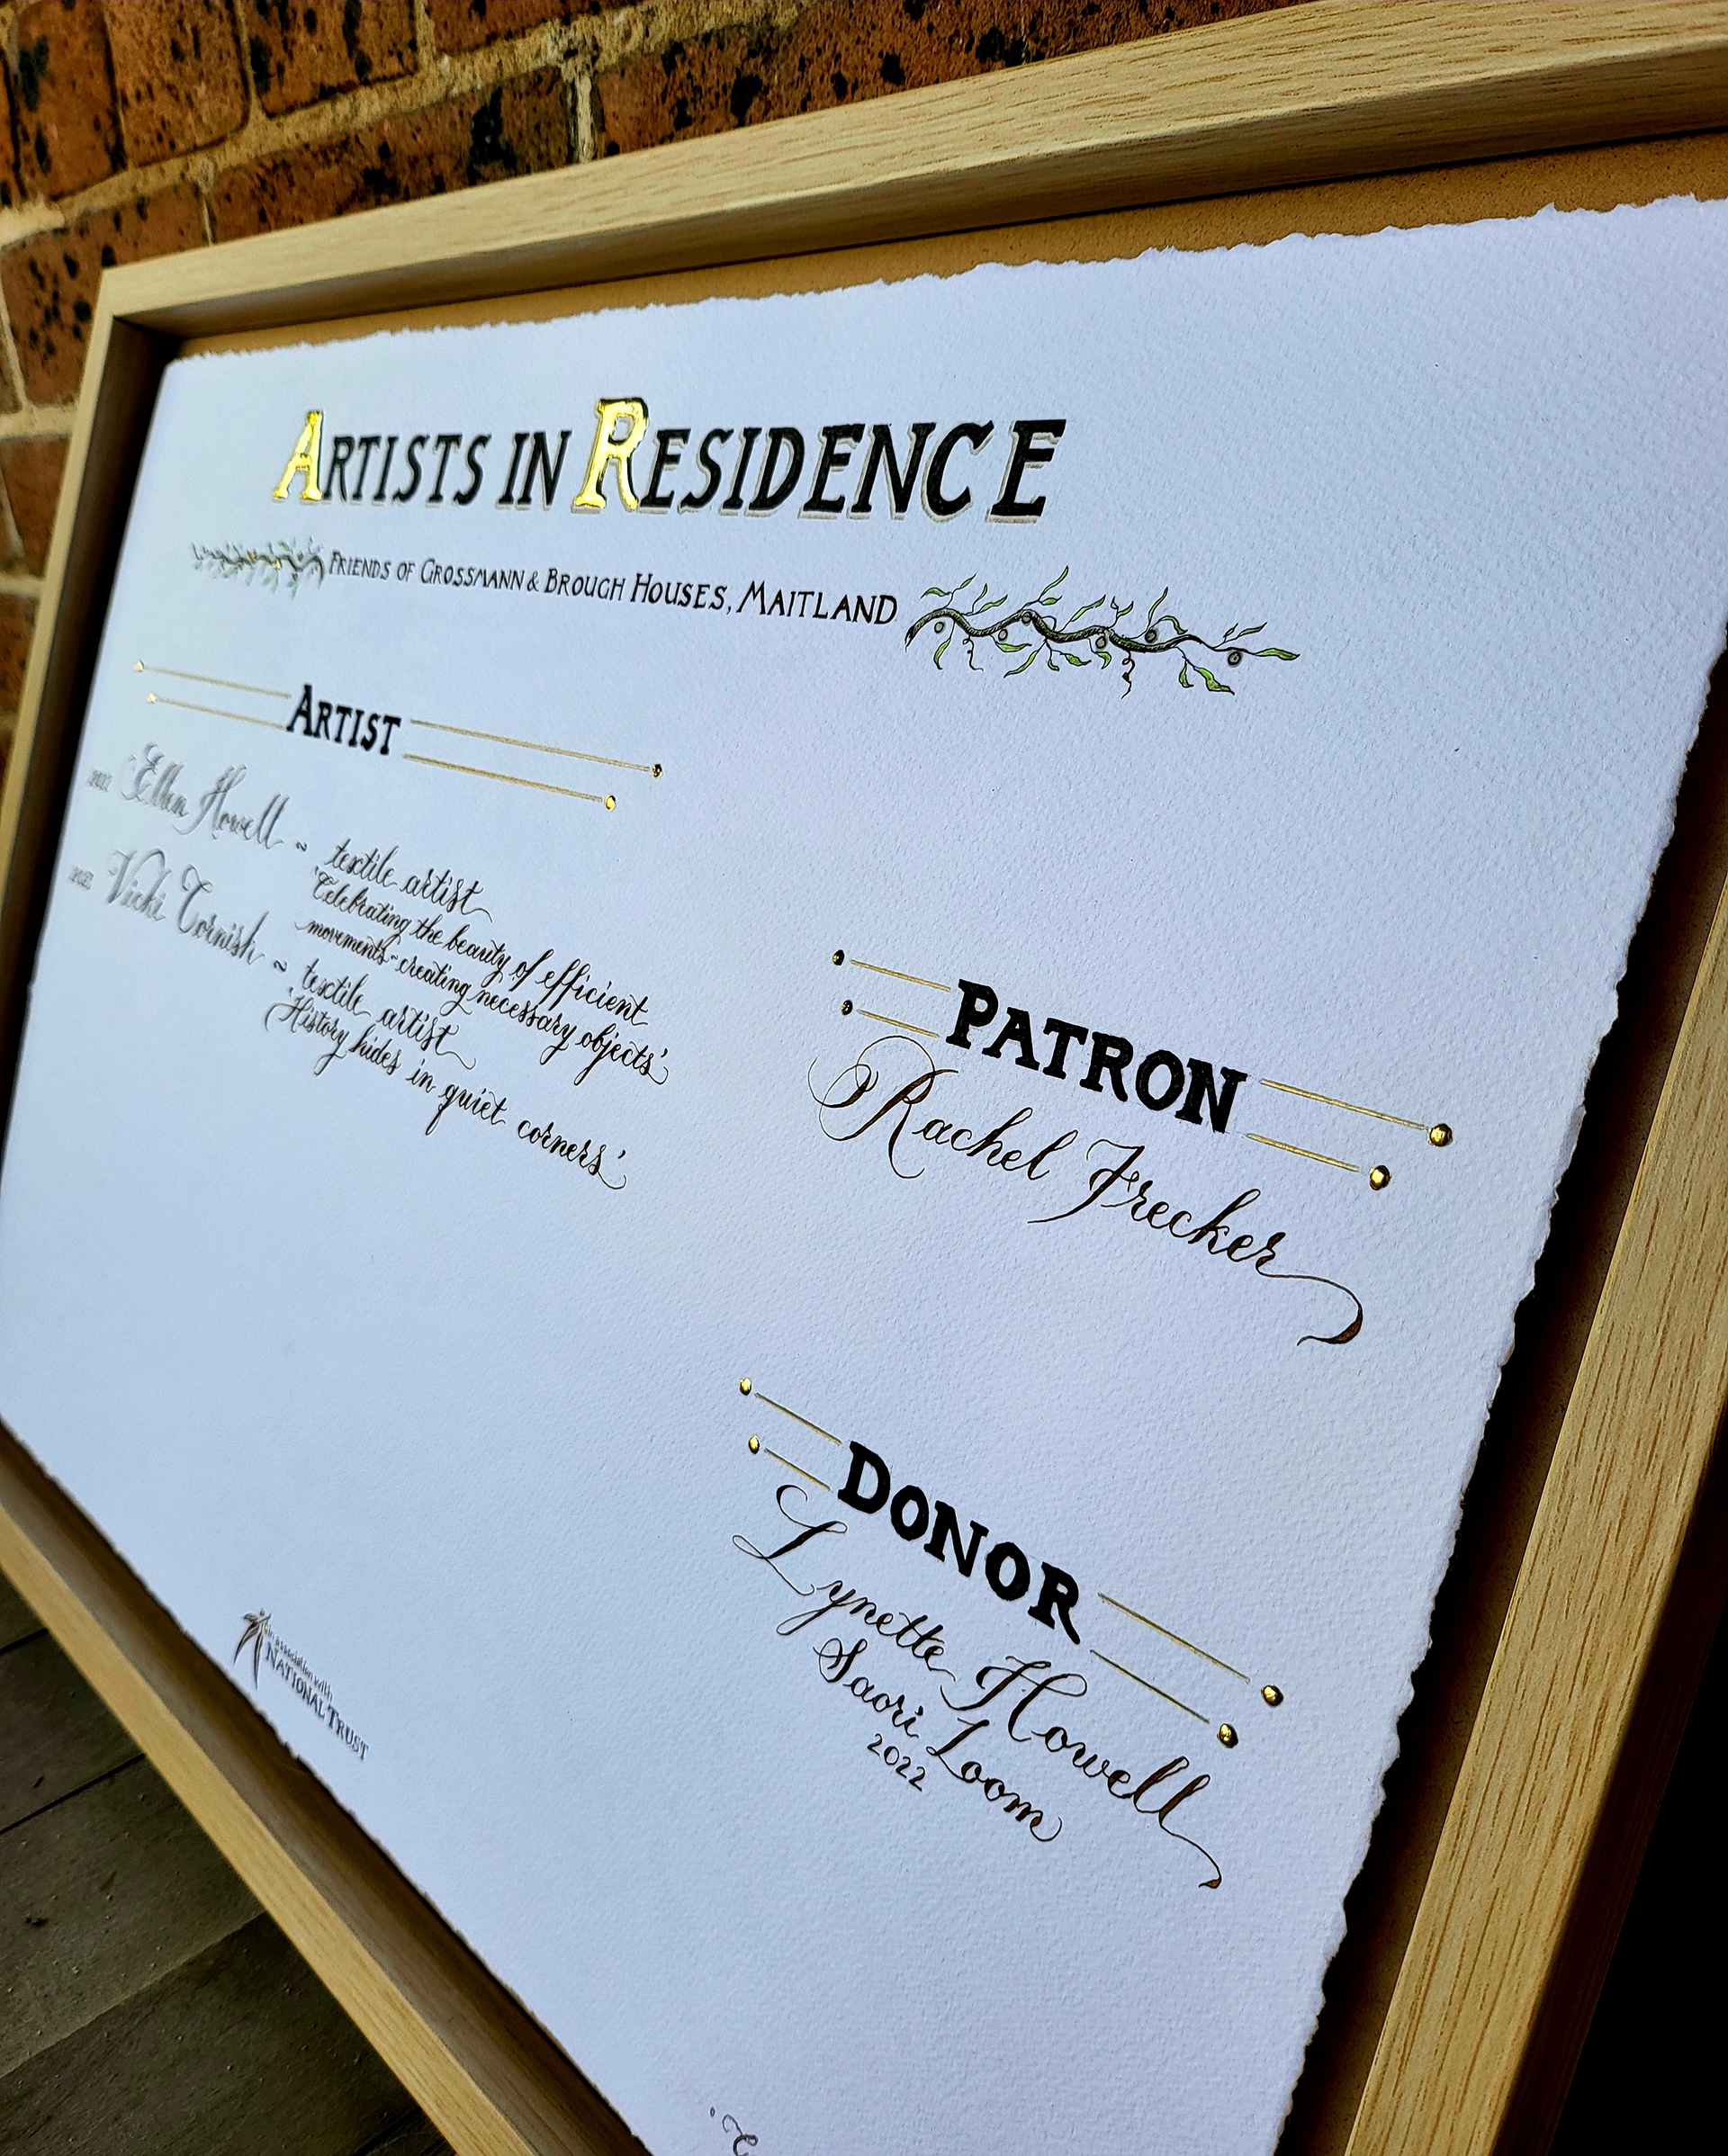 ARTISTS IN RESIDENCE
FRIENDS OF GROSSMANN & BROUGH HOUSES, MAITLAND
ARTIST
Ellen Howell ~ textile artist
'Celebrating the beauty of efficient
movements - creating necessary objects'
Vicki Cornish ~ textile artist
'History hides in quiet corners'
PATRON
Rachel Frecker
DONOR
Lynette Howell
Saori Loom
2022
in association with
NATIONAL TRUST